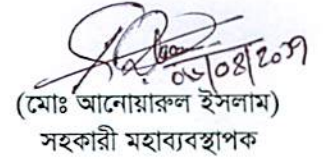 ০৮/০৪/২০২১
(মোঃ আনোয়ারুল ইসলাম)
সহকারী মহাব্যবস্থাপক